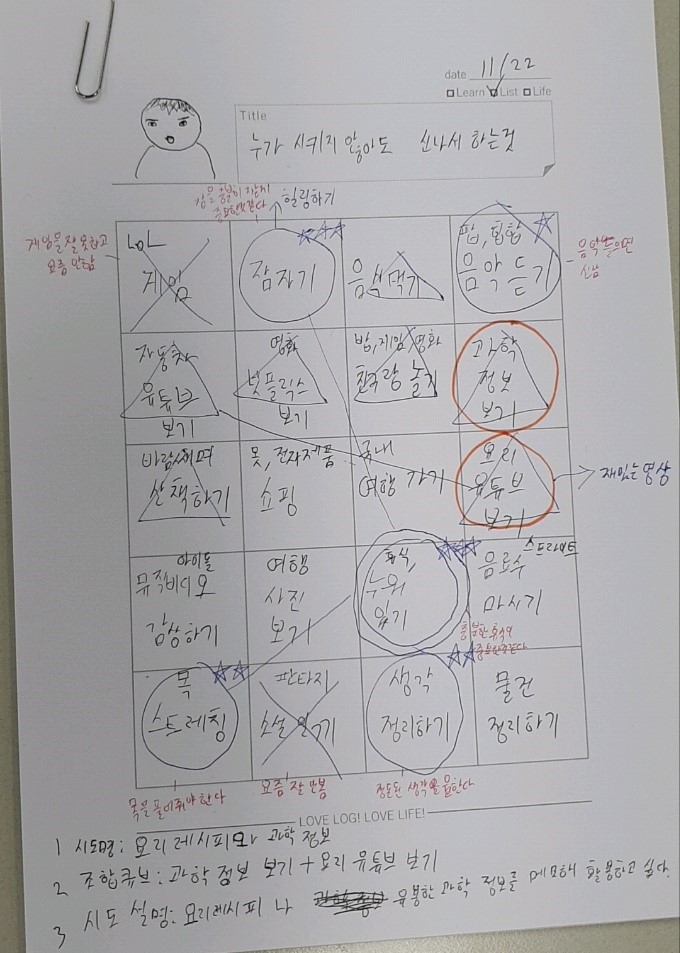 date 11/22
Learn List Life
Title
누가 시키지 않아도 신나서 하는것
힐링하기
게임을 잘 못하고
요즘 안함
LoL
게임
잠자기
음식먹기
팝, 힙합
음악 듣기
음악 들으면
신남
자동차
유튜브
보기
영화
넷플릭스
보기
밥, 게임, 영화
친구랑 놀기
과학
정보
보기
바람쐬며
산책하기
옷, 전자제품
쇼핑
국내
여행 가기
요리
유튜브
보기
재밌는 영상
아이돌
뮤직비디오
감상하기
여행
사진
보기
휴식,
누워
있기
스프라이트
음료수
마시기
충분한 휴식이
중요하다
목
스트레칭
판타지
소설 읽기
생각
정리하기
물건
정리하기
목을 풀어줘야 한다
요즘 잘 안봄
정돈된 생각을 원한다
LOVE LOG! LOVE LIFE!
1 시도명: 요리 레시피와 과학 정보
2 조합큐브: 과학 정보 보기 + 요리 유튜브 보기
3 시도 설명: 요리레시피 나 유용한 과학 정보를 메모해 활용하고 싶다.